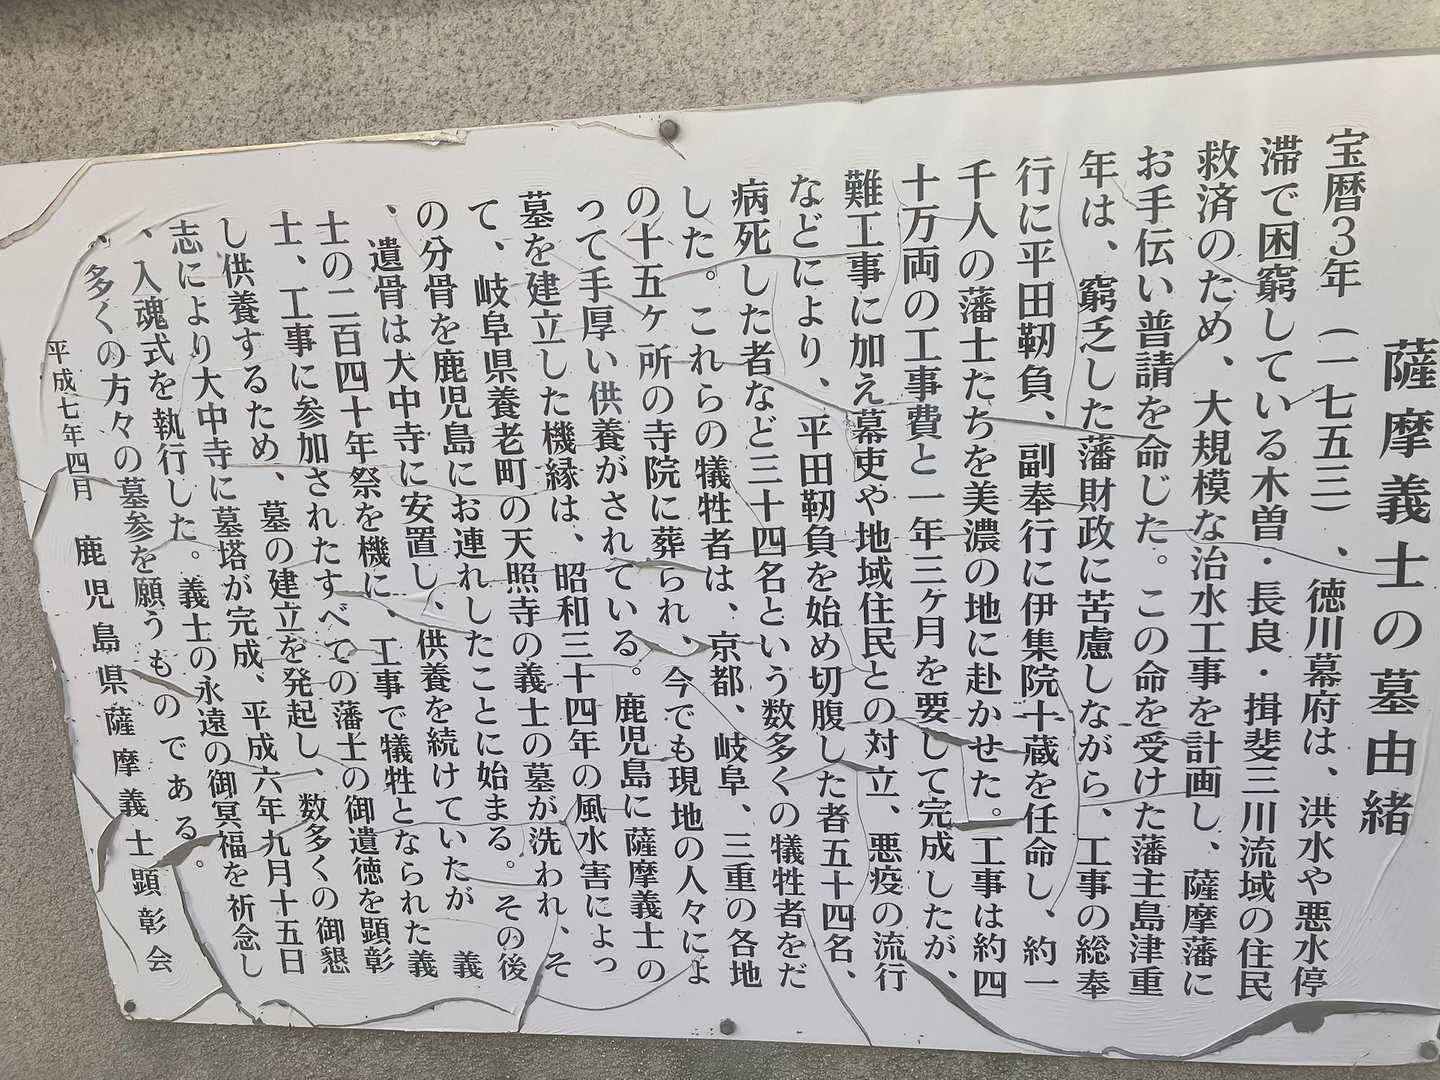 薩摩義士の墓由緒
宝暦3年（一七五三）、徳川幕府は、洪水や悪水停
滞で困窮している木曽・長良・揖斐三川流域の住民
救済のため、大規模な治水工事を計画し、薩摩藩に
お手伝い普請を命じた。この命を受けた藩主島津重
年は、窮乏した藩財政に苦慮しながら、工事の総奉
行に平田靭負、副奉行に伊集院十蔵を任命し、約一
千人の藩士たちを美濃の地に赴かせた。工事は約四
十万両の工事費と一年三ヶ月を要して完成したが、
難工事に加え幕吏や地域住民との対立、悪疫の流行
などにより、平田靭負を始め切腹した者五十四名、
病死した者など三十四名という数多くの犠牲者をだ
した。これらの犠牲者は、京都、岐阜、三重の各地
の十五ヶ所の寺院に葬られ、今でも現地の人々によ
って手厚い供養がされている。鹿児島に薩摩義士の
墓を建立した機縁は、昭和三十四年の風水害によっ
て、岐阜県養老町の天照寺の義士の墓が洗われ、そ
の分骨を鹿児島にお連れしたことに始まる。その後
、遺骨は大中寺に安置し、供養を続けていたが　義
士の二百四十年祭を機に　工事で犠牲となられた義
士、工事に参加されたすべての藩士の御遺徳を顕彰
し供養するため、墓の建立を発起し、数多くの御懇
志により大中寺に墓塔が完成、平成六年九月十五日
、入魂式を執行した。義士の永遠の御冥福を祈念し
、多くの方々の墓参を願うものである。
平成七年四月　鹿児島県薩摩義士顕彰会